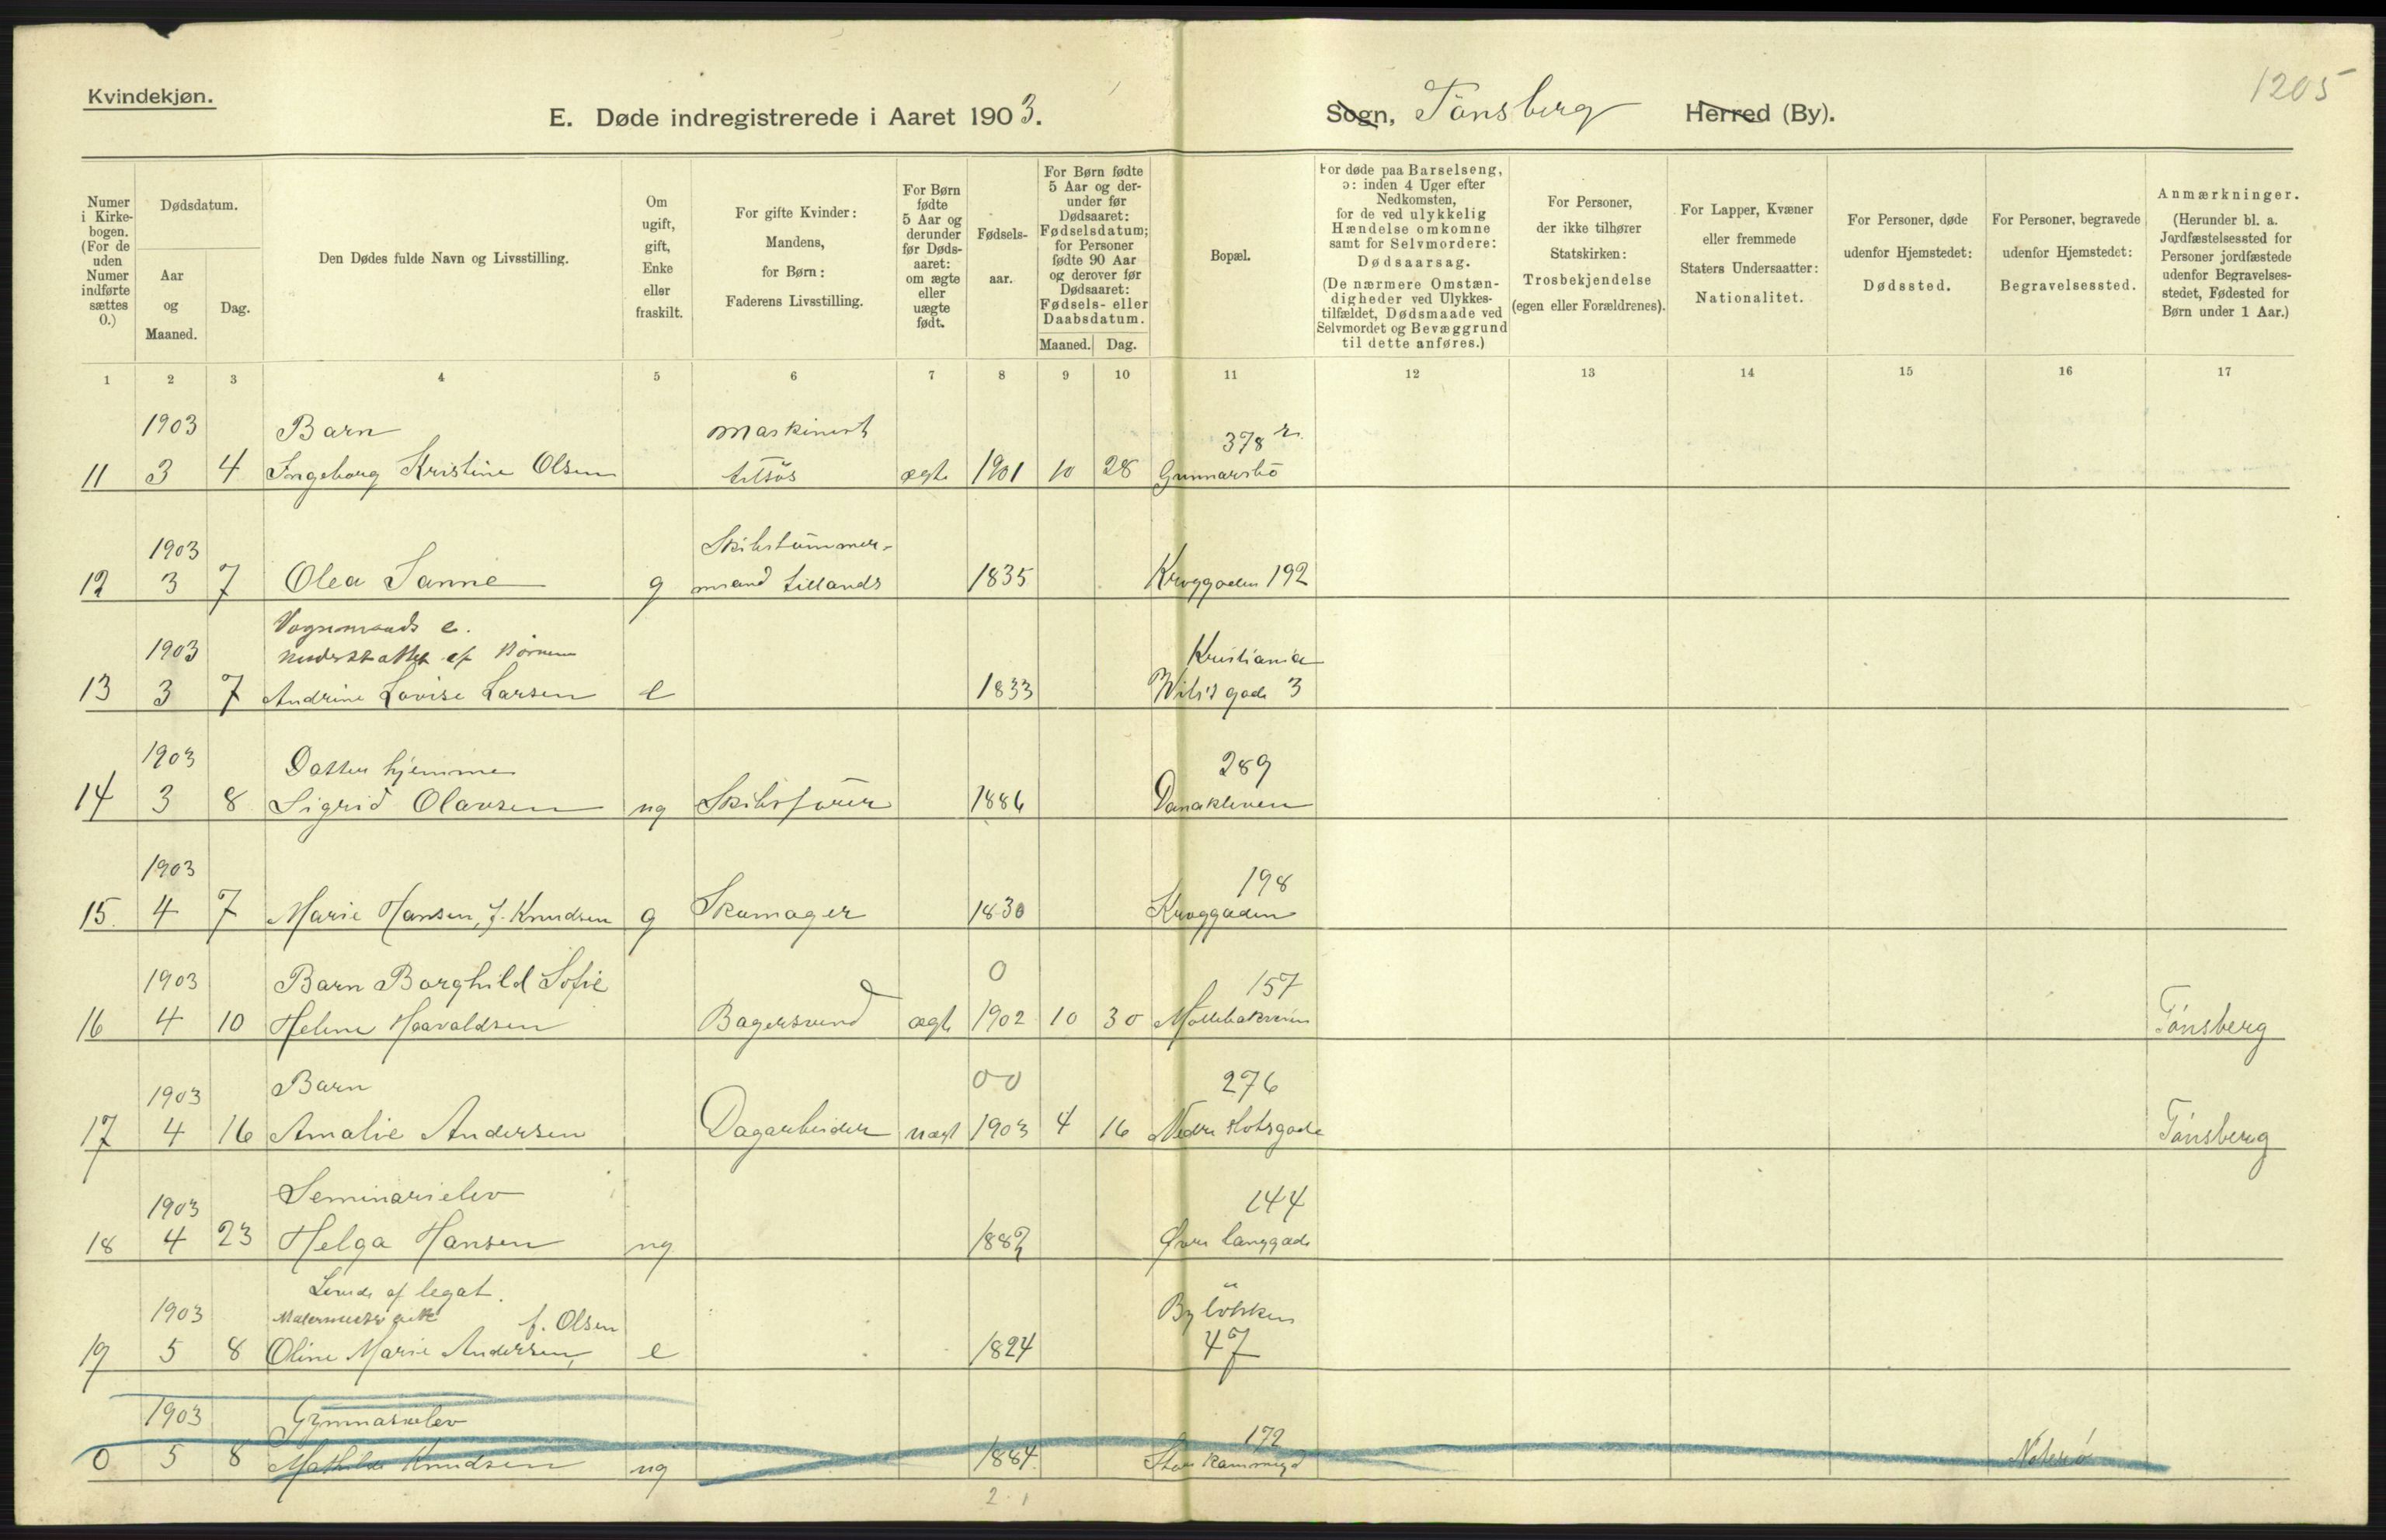 Kvindekjøn.
1205
E. Døde indregistrerede i Aaret 1903. Sogn, Tönsberg Herred (By).
Numer i Kirkebogen. (For de uden Numer indførte sættes 0.)
Dødsdatum.
Aar og Maaned.
Dag.
Den Dødes fulde Navn og Livsstilling.
Om ugift, gift, Enke eller fraskilt.
For gifte Kvinder: Mandens, for Børn: Faderens Livsstilling.
For Børn fødte 5 Aar og derunder før Dødsaaret: om ægte eller uægte født.
Fødselsaar.
For Børn fødte 5 Aar og derunder før Dødsaaret: Fødselsdatum; for Personer fødte 90 Aar og derover før Dødsaaret: Fødsels- eller Daabsdatum.
Maaned. Dag.
Bopæl.
For døde paa Barselseng, ɔ: inden 4 Uger efter Nedkomsten, for de ved ulykkelig Hændelse omkomne samt for Selvmordere: Dødsaarsag.
(De nærmere Omstændigheder ved Ulykkestilfældet, Dødsmaade ved Selvmordet og Bevæggrund til dette anføres.)
For Personer, der ikke tilhører Statskirken: Trosbekjendelse (egen eller Forældrenes).
For Lapper, Kvæner eller fremmede Staters Undersaatter: Nationalitet.
For Personer, døde udenfor Hjemstedet: Dødssted.
For Personer, begravede udenfor Hjemstedet: Begravelsessted.
Anmærkninger.
(Herunder bl. a. Jordfæstelsessted for Personer jordfæstede udenfor Begravelsesstedet, Fødested for Børn under 1 Aar.)
1 2 3 4 5 6 7 8 9 10 11 12 13 14 15 16 17
1903 Barn Maskinist 378
11 3 4 Ingeborg Kristine Olsen tilsös ægte 1901 10 28 Gunnarsbö
1903 Skibstömmer-
12 3 7 Olea Sanne g mand tillands 1835 Kroggaden 192
Vognmands e.
1903 understöttet af Børnene Kristiania
13 3 7 Andrine Lovise Larsen e 1833 gade 3
1903 Datter hjemme 289
14 3 8 Sigrid Olavsen ug Skibsförer 1886 Danakleven
1903 198
15. 4 7 Marie Hansen, f. Knudsen g Skomager 1830 Kroggaden
1903 Barn Borghild Sofie 0 157
16 4 10 Helene Haavaldsen Bagersvend ægte 1902 10 30 Möllebakveien Tönsberg
1903 Barn 00 276
17 4 16 Amalie Andersen Dagarbeider uægt 1903 4 16 Nedre Tönsberg
1903 Seminarielev 144
18 4 23 Helga Hansen ug 1882 Øvre langgade
Levede af legat.
1903 Malermester enke f. Olsen Bylökken
19 5 8 Oline Marie Andersen, e 1824 47
1903 Gymnasielev 172
0 5 8 Mathilde Knudsen ug 1884 Store Nøterø
2 1